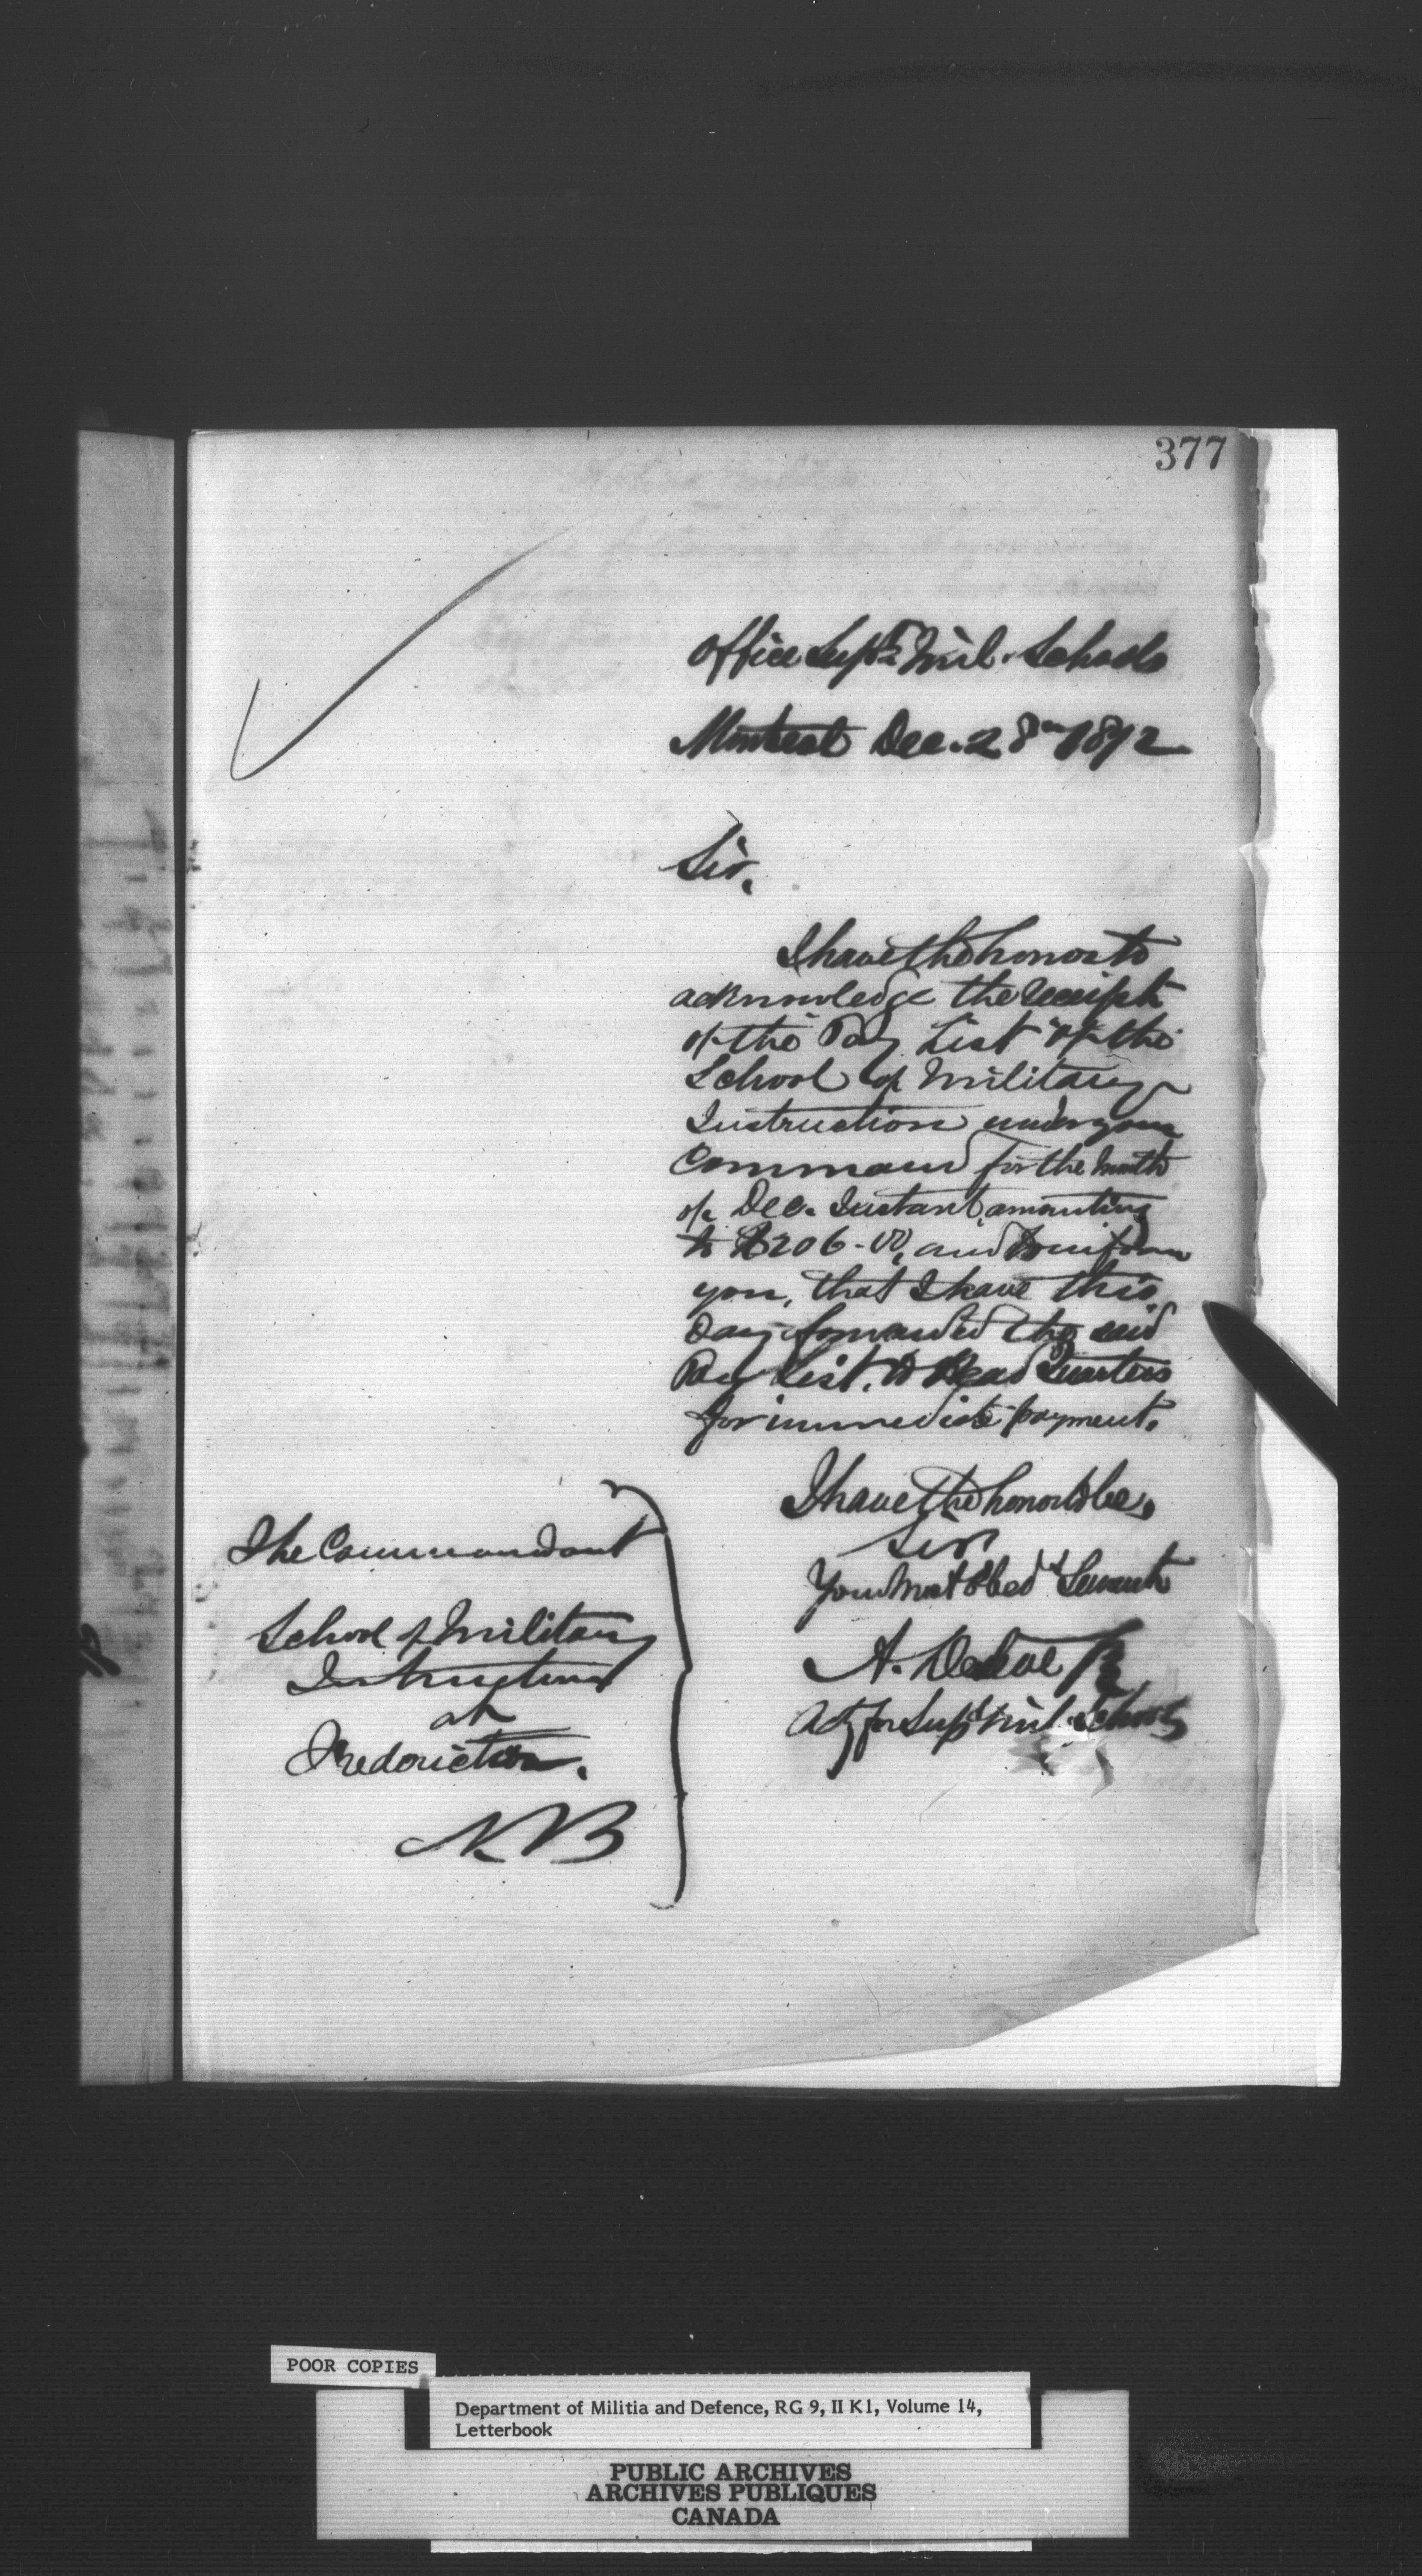 377
Office Supt. Mil. Schools
Montreal Dec. 28th 1872
Sir,
I have the honor to
acknowledge the receipt
of the Pay List of the
School of Military
Instruction under your
Command for the Month
of Dec. Instant, amounting
to $206-00, and to inform
you, that I have this
day forwarded the said
Pay List, to Head Quarters
for immediate payment.
I have the honor to be,
Sir
Your Most Obed Servant
A.
Adj for Supt Mil. Schools
The Commandant
School of Military
Instruction
at
Fredericton.
N B
POOR COPIES
Department of Militia and Defence, RG 9, II K1, Volume 14,
Letterbook
PUBLIC ARCHIVES
ARCHIVES PUBLIQUES
CANADA